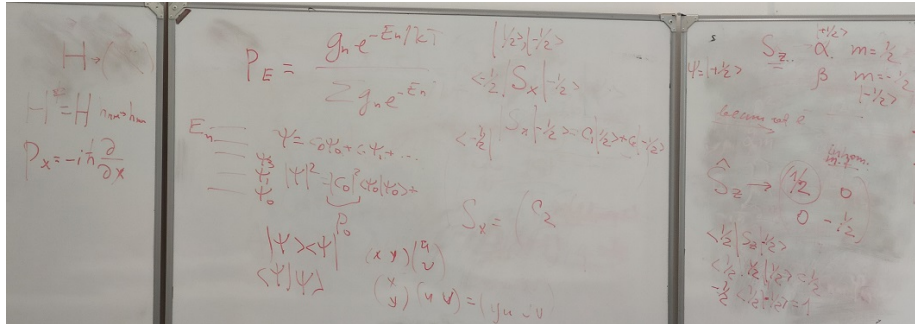 H → (
H = H
Pₓ = -iħ ∂/∂x
P_E = gₙe^(-Eₙ/kT) / Σgₙe^(-Eₙ)
Eₙ
Ψ = c₀Ψ₀ + c₁Ψ₁ + ...
Ψ₁
Ψ₀
|Ψ|² = |c₀|²⟨Ψ₀|Ψ₀⟩+
P₀
|Ψ⟩⟨Ψ|
⟨Ψ|Ψ⟩
(x y)(u
v)
(x
y)(u v) = (
|½⟩,|-½⟩
⟨-½|Sₓ|-½⟩
⟨-½|Sₓ|-½⟩ = c₁|½⟩+c₂|-½⟩
Sₓ = ( c₂
s
|+½⟩
S_z α m=½
Ψ=|+½⟩
β m=-½
|-½⟩
Ŝ_z → (½ 0
0 -½)
⟨½|S_z|½⟩
⟨½|½|½⟩=½
⟨½|½⟩=1